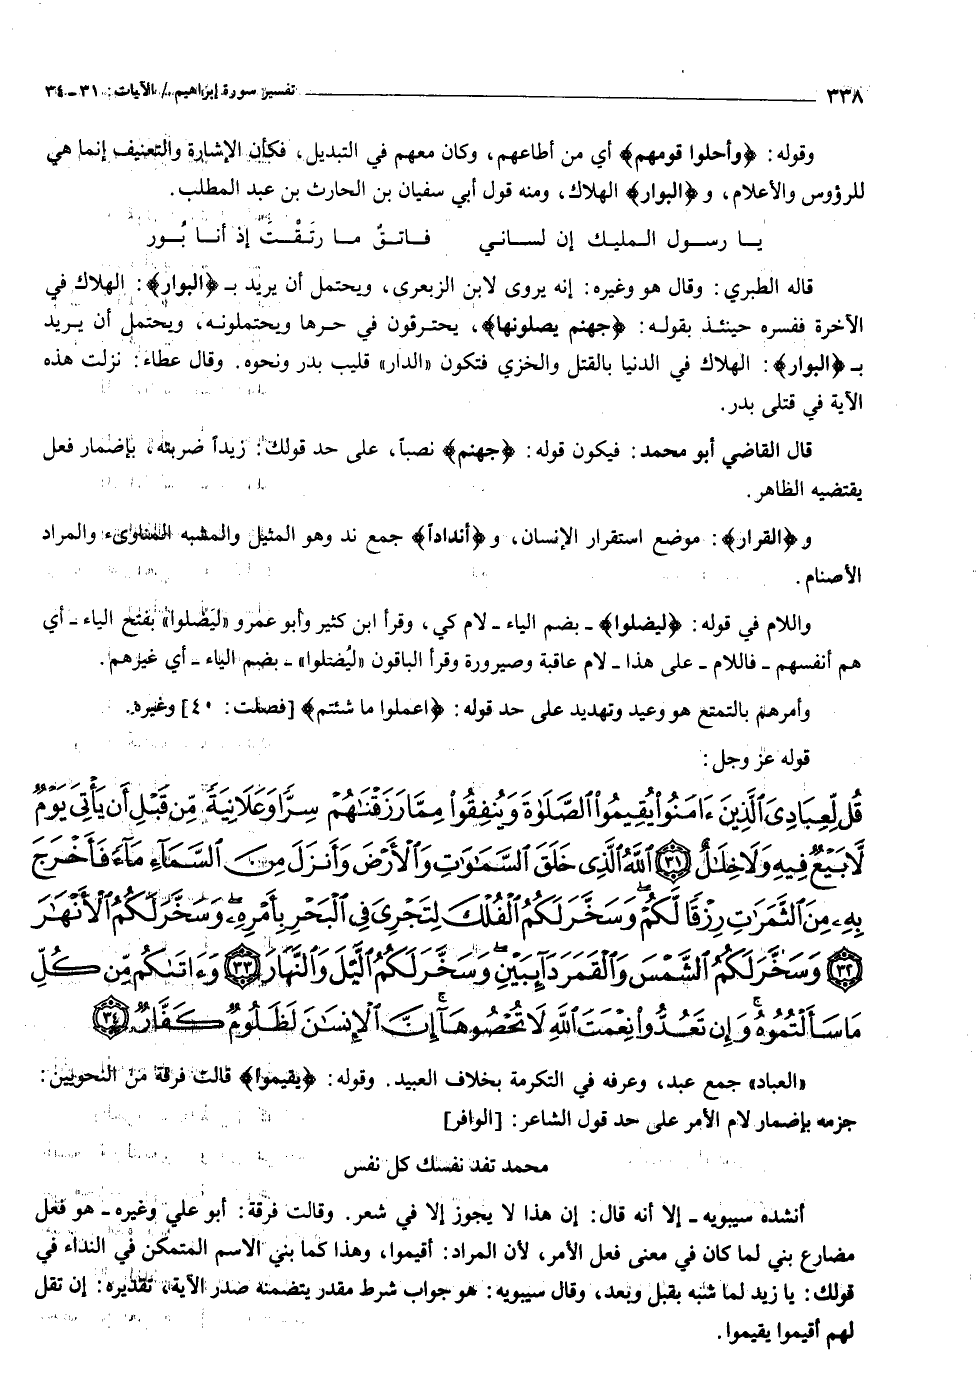 ٣٣٨ تفسير سورة إبراهيم / الآيات: ٣١ـ٣٤
وقوله: ﴿وأحلوا قومهم﴾ أي من أطاعهم، وكان معهم في التبديل، فكأن الإشارة والتعنيف إنما هي
للرؤوس والأعلام، و﴿البوار﴾ الهلاك، ومنه قول أبي سفيان بن الحارث بن عبد المطلب.
يا رسول المليك إن لساني فاتق ما رتقت إذ أنا بُور
قاله الطبري: وقال هو وغيره: إنه يروى لابن الزبعرى، ويحتمل أن يريد بـ ﴿البوار﴾: الهلاك في
الآخرة ففسره حينئذ بقوله: ﴿جهنم يصلونها﴾، يحترقون في حرها ويحتملونه، ويحتمل أن يريد
بـ ﴿البوار﴾: الهلاك في الدنيا بالقتل والخزي فتكون «الدار» قليب بدر ونحوه. وقال عطاء: نزلت هذه
الآية في قتلى بدر.
قال القاضي أبو محمد: فيكون قوله: ﴿جهنم﴾ نصباً، على حد قولك: زيداً ضربته، بإضمار فعل
يقتضيه الظاهر.
و﴿القرار﴾: موضع استقرار الإنسان، و﴿أنداداً﴾ جمع ند وهو المثيل والمشبه المناوىء والمراد
الأصنام.
واللام في قوله: ﴿ليضلوا﴾ ـ بضم الياء ـ لام كي، وقرأ ابن كثير وأبو عمرو «ليَضلوا» بفتح الياء ـ أي
هم أنفسهم ـ فاللام ـ على هذا ـ لام عاقبة وصيرورة وقرأ الباقون «ليُضلوا» ـ بضم الياء ـ أي غيرهم.
وأمرهم بالتمتع هو وعيد وتهديد على حد قوله: ﴿اعملوا ما شئتم﴾ [فصلت: ٤٠] وغيره.
قوله عز وجل:
قُل لِّعِبَادِىَ ٱلَّذِينَ ءَامَنُوا۟ يُقِيمُوا۟ ٱلصَّلَوٰةَ وَيُنفِقُوا۟ مِمَّا رَزَقْنَٰهُمْ سِرًّا وَعَلَانِيَةً مِّن قَبْلِ أَن يَأْتِىَ يَوْمٌ
لَّا بَيْعٌ فِيهِ وَلَا خِلَٰلٌ ﴿٣١﴾ ٱللَّهُ ٱلَّذِى خَلَقَ ٱلسَّمَٰوَٰتِ وَٱلْأَرْضَ وَأَنزَلَ مِنَ ٱلسَّمَآءِ مَآءً فَأَخْرَجَ
بِهِۦ مِنَ ٱلثَّمَرَٰتِ رِزْقًا لَّكُمْ ۖ وَسَخَّرَ لَكُمُ ٱلْفُلْكَ لِتَجْرِىَ فِى ٱلْبَحْرِ بِأَمْرِهِۦ ۖ وَسَخَّرَ لَكُمُ ٱلْأَنْهَٰرَ
﴿٣٢﴾ وَسَخَّرَ لَكُمُ ٱلشَّمْسَ وَٱلْقَمَرَ دَآئِبَيْنِ ۖ وَسَخَّرَ لَكُمُ ٱلَّيْلَ وَٱلنَّهَارَ ﴿٣٣﴾ وَءَاتَىٰكُم مِّن كُلِّ
مَا سَأَلْتُمُوهُ ۚ وَإِن تَعُدُّوا۟ نِعْمَتَ ٱللَّهِ لَا تُحْصُوهَآ ۗ إِنَّ ٱلْإِنسَٰنَ لَظَلُومٌ كَفَّارٌ ﴿٣٤﴾
«العباد» جمع عبد، وعرفه في التكرمة بخلاف العبيد. وقوله: ﴿يقيموا﴾ قالت فرقة من النحويين:
جزمه بإضمار لام الأمر على حد قول الشاعر: [الوافر]
محمد تفد نفسك كل نفس
أنشده سيبويه ـ إلا أنه قال: إن هذا لا يجوز إلا في شعر. وقالت فرقة: أبو علي وغيره ـ هو فعل
مضارع بني لما كان في معنى فعل الأمر، لأن المراد: أقيموا، وهذا كما بني الاسم المتمكن في النداء في
قولك: يا زيد لما شبه بقبل وبعد، وقال سيبويه: هو جواب شرط مقدر يتضمنه صدر الآية، تقديره: إن تقل
لهم أقيموا يقيموا.